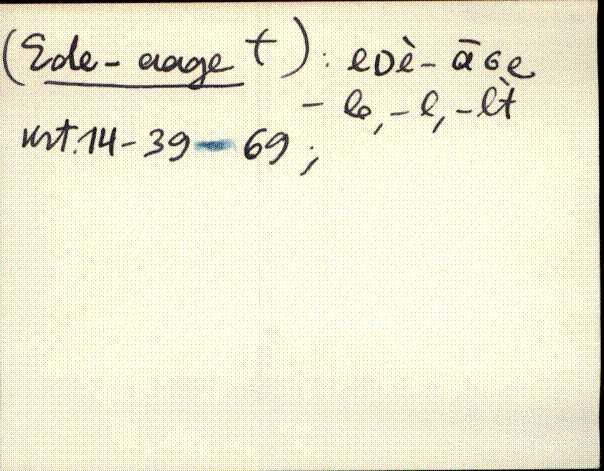 (Ede-aage †): eDè-āGe
-le, -l, -lt̀
krt. 14-39-69;